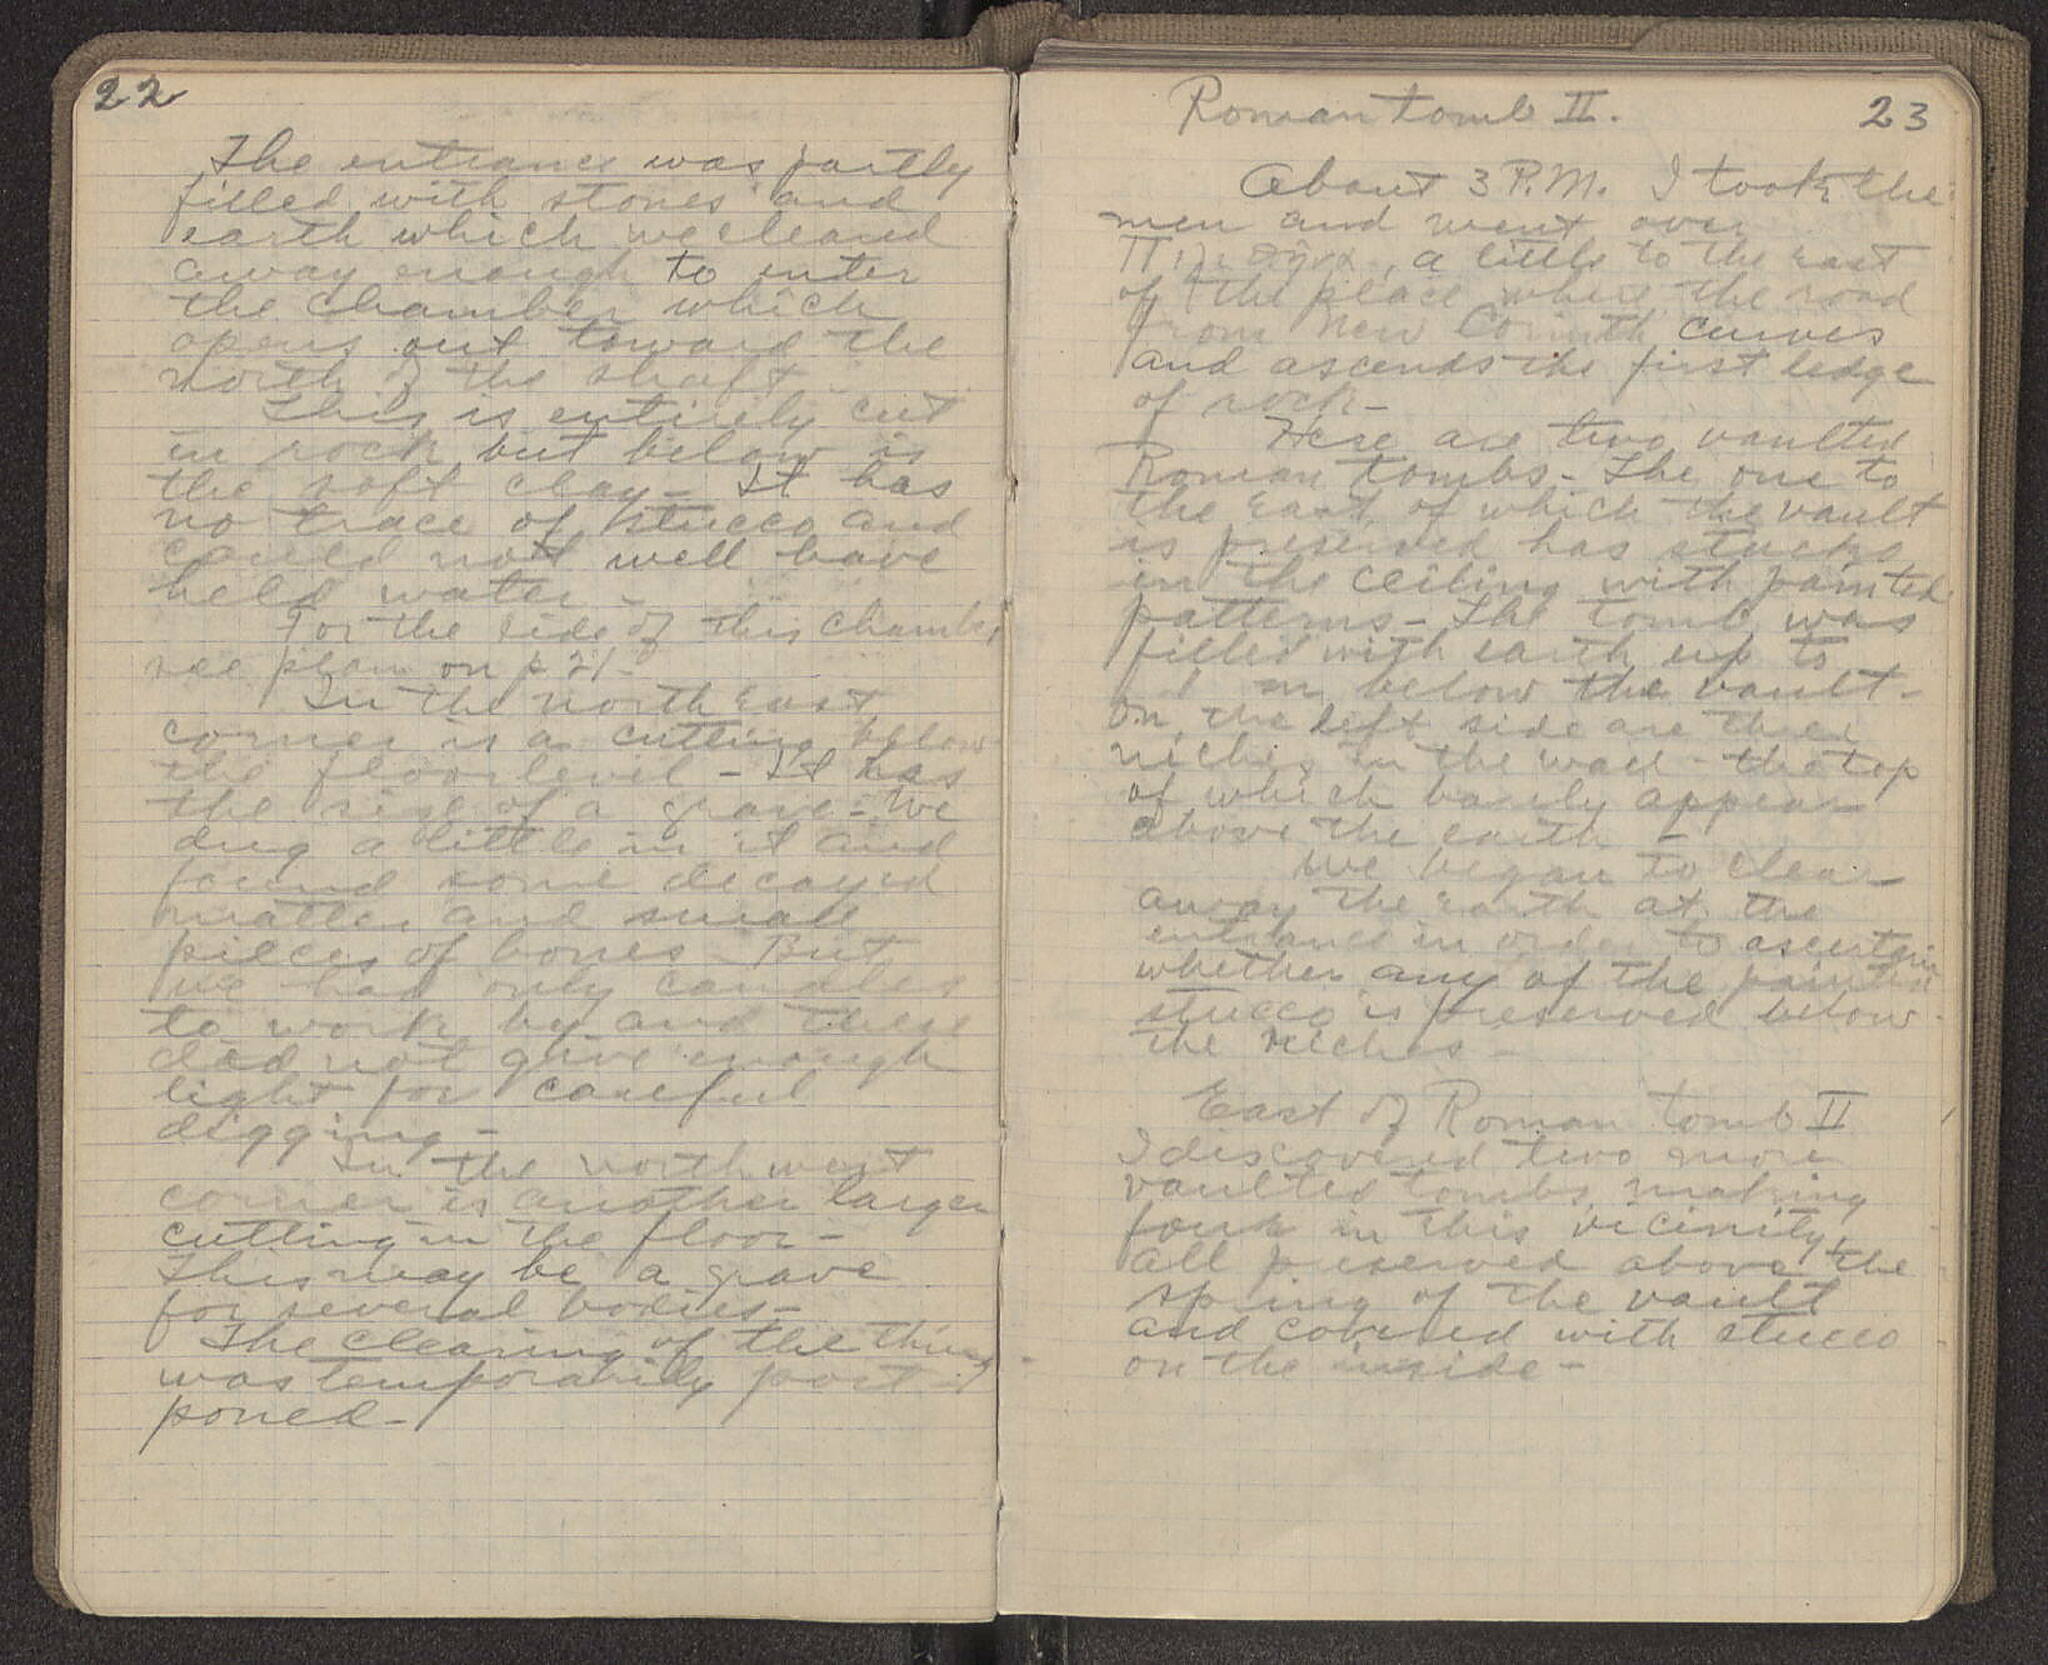 22
The entrance was partly
filled with stones and
earth which we cleared
away enough to enter
the chamber which
opens out toward the
north of the shaft.
This is entirely cut
in rock but below is
the soft clay - It has
no trace of stucco and
could not well have
held water -
For the side of this chamber
see plan on p 21 -
In the north east
corner is a cutting below
the floor level - It has
the size of a grave - We
dug a little in it and
found some decayed
matter and small
pieces of bones - But
we had only candles
to work by and these
did not give enough
light for careful
digging -
In the north west
corner is another larger
cutting in the floor -
This may be a grave
for several bodies -
The clearing of the thing
was temporarily post
poned -
Roman tomb II.
23
About 3 P.M. I took the
men and went over
, a little to the east
of the place where the road
from New Corinth curves
and ascends the first ledge
of rock -
Here are two vaulted
Roman tombs - The one to
the East of which the vault
is preserved has stucko
in the ceiling with painted
patterns - The tomb was
filled with earth up to
m below the vault -
On the left side are three
niches in the wall - the top
of which barely appear
above the earth -
We began to clear
away the earth at the
entrance in order to ascertain
whether any of the painted
stucco is preserved below
the niches -
East of Roman tomb II
I discovered two more
vaulted tombs, making
four in this vicinity,
all preserved above the
spring of the vault
and covered with stucco
on the inside -